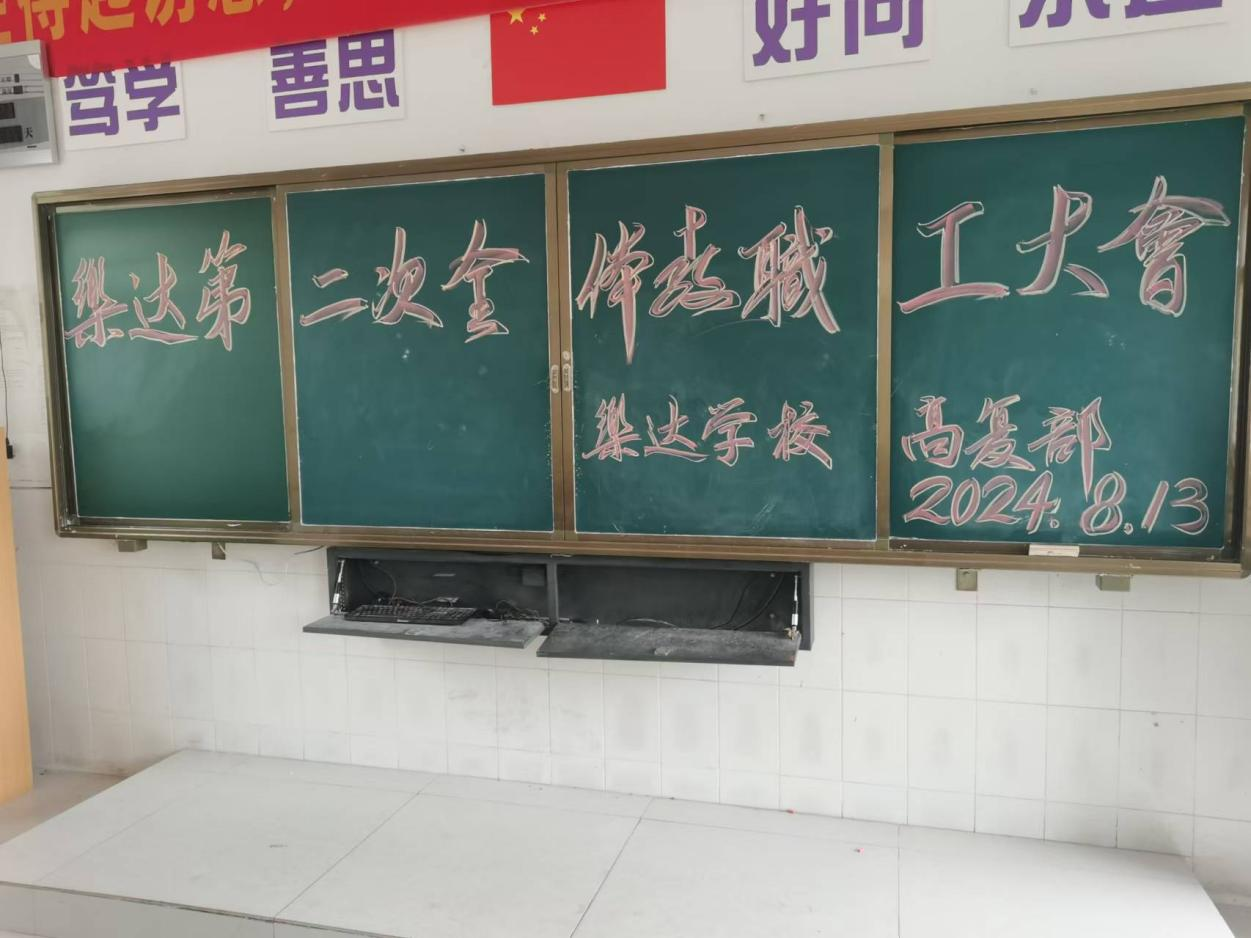 笃学
善思
好问
天
樂达第二次全体教職工大會
樂达学校
高复部
2024.8.13